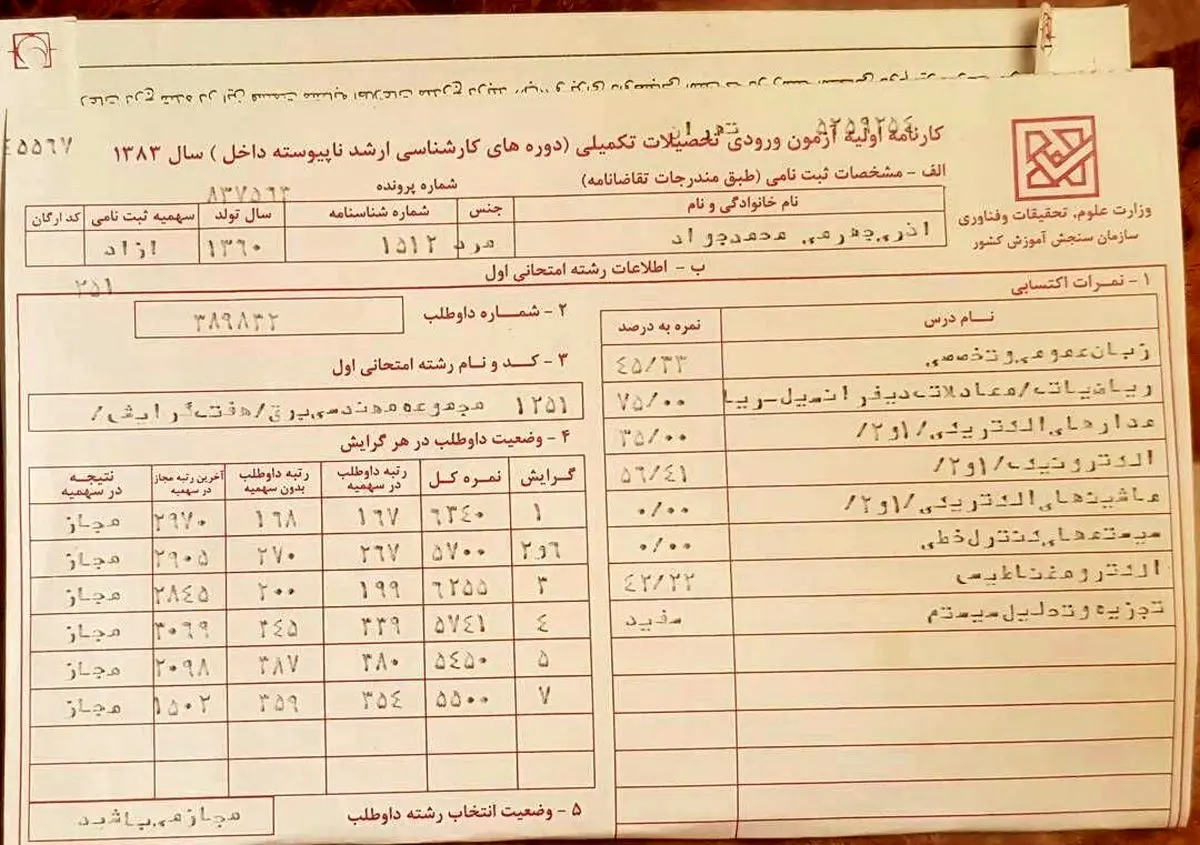 ۴۵۵۶۷
تهران
۵۲۵۹۲۵۴
کارنامه اولیه آزمون ورودی تحصیلات تکمیلی (دوره های کارشناسی ارشد ناپیوسته داخل) سال ۱۳۸۳
وزارت علوم، تحقیقات وفناوری
سازمان سنجش آموزش کشور
الف - مشخصات ثبت نامی (طبق مندرجات تقاضانامه)
شماره پرونده ۸۳۷۵۶۳
نام خانوادگی و نام جنس شماره شناسنامه سال تولد سهمیه ثبت نامی کد ارگان
اذری جهرمی محمدجواد مرد ۱۵۱۲ ۱۳۶۰ ازاد
ب - اطلاعات رشته امتحانی اول
۲۵۱
۱ - نمرات اکتسابی
نام درس نمره به درصد
زبان عمومی و تخصصی ۴۵/۳۳
ریاضیات/معادلات دیفرانسیل-ریا ۷۵/۰۰
مدارهای الکتریکی/۱و۲/ ۳۵/۰۰
الکترونیک/۱و۲/ ۵۶/۴۱
ماشینهای الکتریکی/۱و۲/ ۰/۰۰
سیستمهای کنترل خطی ۰/۰۰
الکترومغناطیس ۴۲/۲۲
تجزیه و تحلیل سیستم سفید
۲ - شماره داوطلب ۳۸۹۸۳۲
۳ - کد و نام رشته امتحانی اول
۱۲۵۱ مجموعه مهندسی برق/هفت گرایش/
۴ - وضعیت داوطلب در هر گرایش
گرایش نمره کل رتبه داوطلب در سهمیه رتبه داوطلب بدون سهمیه آخرین رتبه مجاز در سهمیه نتیجه در سهمیه
۱ ۶۳۴۰ ۱۶۷ ۱۶۸ ۲۹۷۰ مجاز
۲و۶ ۵۷۰۰ ۲۶۷ ۲۷۰ ۲۹۰۵ مجاز
۳ ۶۲۵۵ ۱۹۹ ۲۰۰ ۲۸۴۵ مجاز
۴ ۵۷۴۱ ۳۳۹ ۳۴۵ ۳۰۶۹ مجاز
۵ ۵۴۵۰ ۳۸۰ ۳۸۷ ۲۰۹۸ مجاز
۷ ۵۵۰۰ ۳۵۴ ۳۵۹ ۱۵۰۲ مجاز
۵ - وضعیت انتخاب رشته داوطلب مجاز می باشید